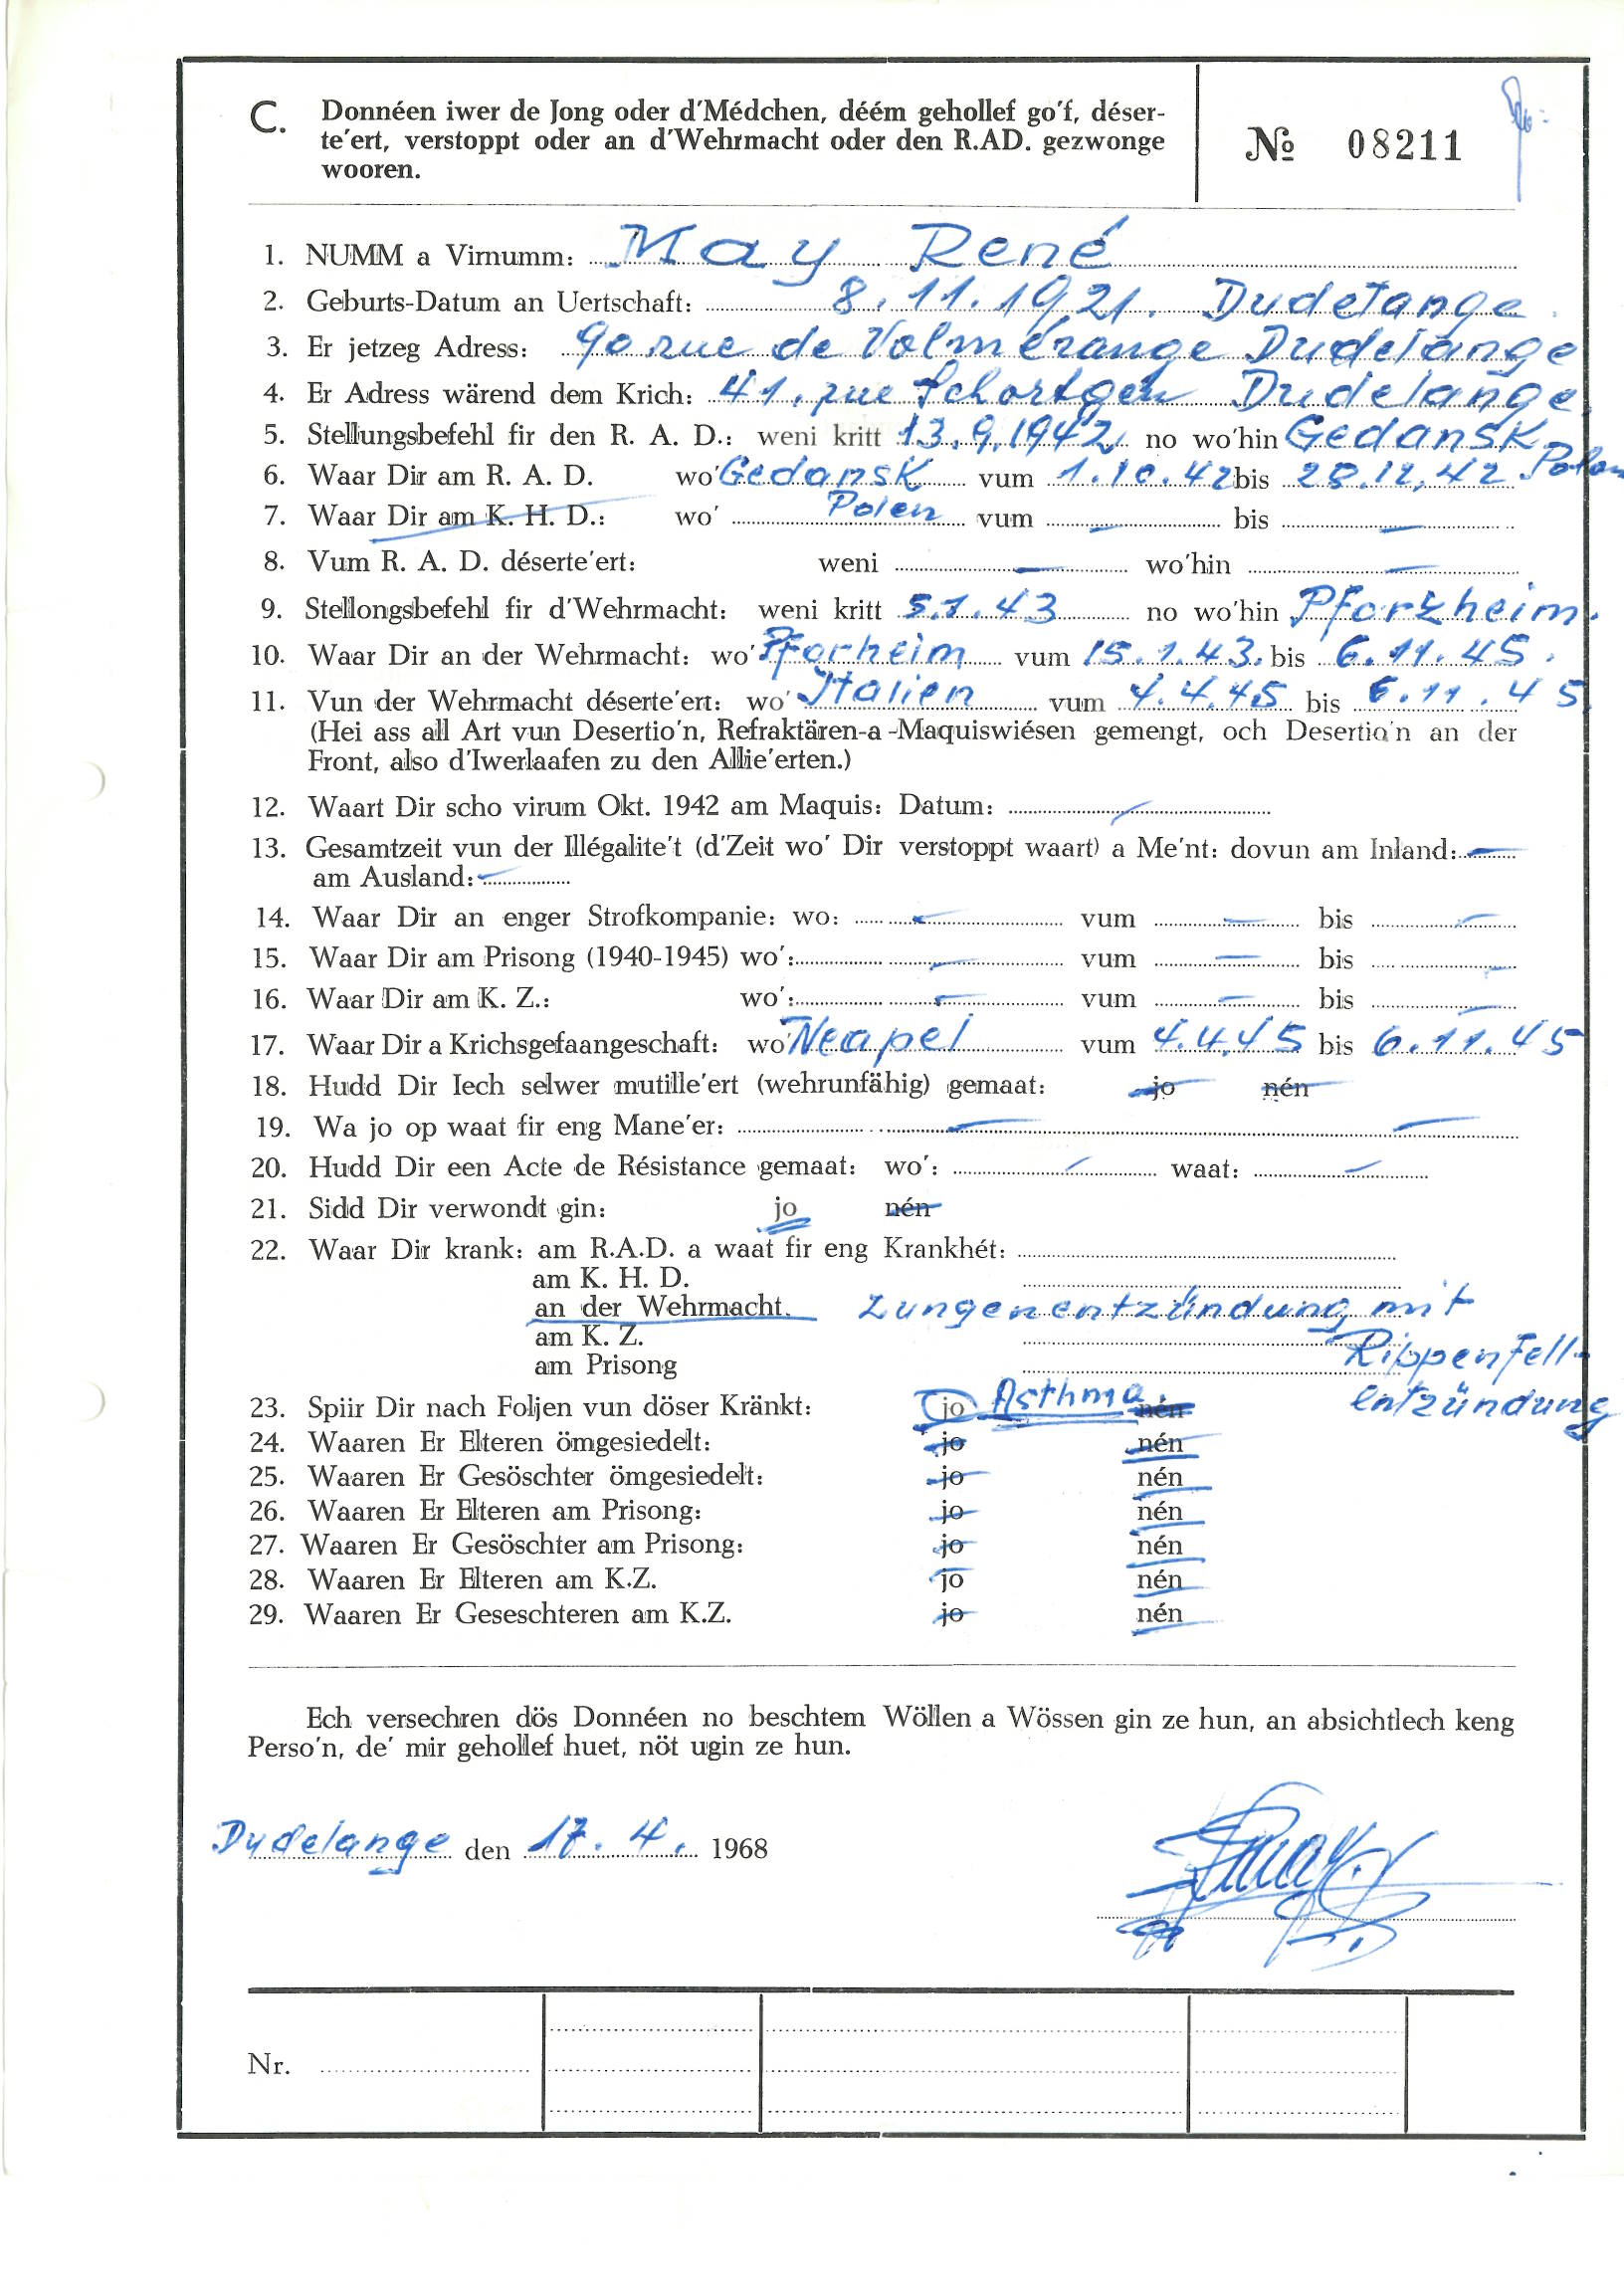 C. Donnéen iwer de Jong oder d'Médchen, déém gehollef go'f, déser-
te'ert, verstoppt oder an d'Wehrmacht oder den R.AD. gezwonge
wooren.
№ 08211
1. NUMM a Virnumm: May René
2. Geburts-Datum an Uertschaft: 8.11.1921. Dudelange.
3. Er jetzeg Adress: 90 rue de Volmérange Dudelange
4. Er Adress wärend dem Krich: 41, rue Schortgen Dudelange.
5. Stellungsbefehl fir den R. A. D.: weni kritt 13.9.1942 no wo'hin Gedansk
6. Waar Dir am R. A. D. wo' Gedansk vum 1.10.42 bis 28.12.42 Polen
7. Waar Dir am K. H. D.: wo' Polen vum — bis —
8. Vum R. A. D. déserte'ert: weni — wo'hin —
9. Stellongsbefehl fir d'Wehrmacht: weni kritt 5.1.43 no wo'hin Pforzheim.
10. Waar Dir an der Wehrmacht: wo' Pforheim vum 15.1.43. bis 6.11.45.
11. Vun der Wehrmacht déserte'ert: wo' Italien vum 4.4.45 bis 6.11.45
(Hei ass all Art vun Desertio'n, Refraktären-a-Maquiswiésen gemengt, och Desertio'n an der
Front, also d'Iwerlaafen zu den Allie'erten.)
12. Waart Dir scho virum Okt. 1942 am Maquis: Datum: —
13. Gesamtzeit vun der Illégalite't (d'Zeit wo' Dir verstoppt waart) a Me'nt: dovun am Inland: —
am Ausland: —
14. Waar Dir an enger Strofkompanie: wo: — vum — bis —
15. Waar Dir am Prisong (1940-1945) wo': — vum — bis —
16. Waar Dir am K. Z.: wo': — vum — bis —
17. Waar Dir a Krichsgefaangeschaft: wo' Neapel vum 4.4.45 bis 6.11.45
18. Hudd Dir Iech selwer mutille'ert (wehrunfähig) gemaat: jo nén
19. Wa jo op waat fir eng Mane'er: — —
20. Hudd Dir een Acte de Résistance gemaat: wo': — waat: —
21. Sidd Dir verwondt gin: jo nén
22. Waar Dir krank: am R.A.D. a waat fir eng Krankhét:
am K. H. D.
an der Wehrmacht. Lungenentzündung mit
am K. Z. Rippenfell-
am Prisong entzündung
23. Spiir Dir nach Foljen vun döser Kränkt: jo Asthma. nén
24. Waaren Er Elteren ömgesiedelt: jo nén
25. Waaren Er Gesöschter ömgesiedelt: jo nén
26. Waaren Er Elteren am Prisong: jo nén
27. Waaren Er Gesöschter am Prisong: jo nén
28. Waaren Er Elteren am K.Z. jo nén
29. Waaren Er Geseschteren am K.Z. jo nén
Ech versechren dös Donnéen no beschtem Wöllen a Wössen gin ze hun, an absichtlech keng
Perso'n, de' mir gehollef huet, nöt ugin ze hun.
Dudelange den 17.4. 1968
May
Nr.